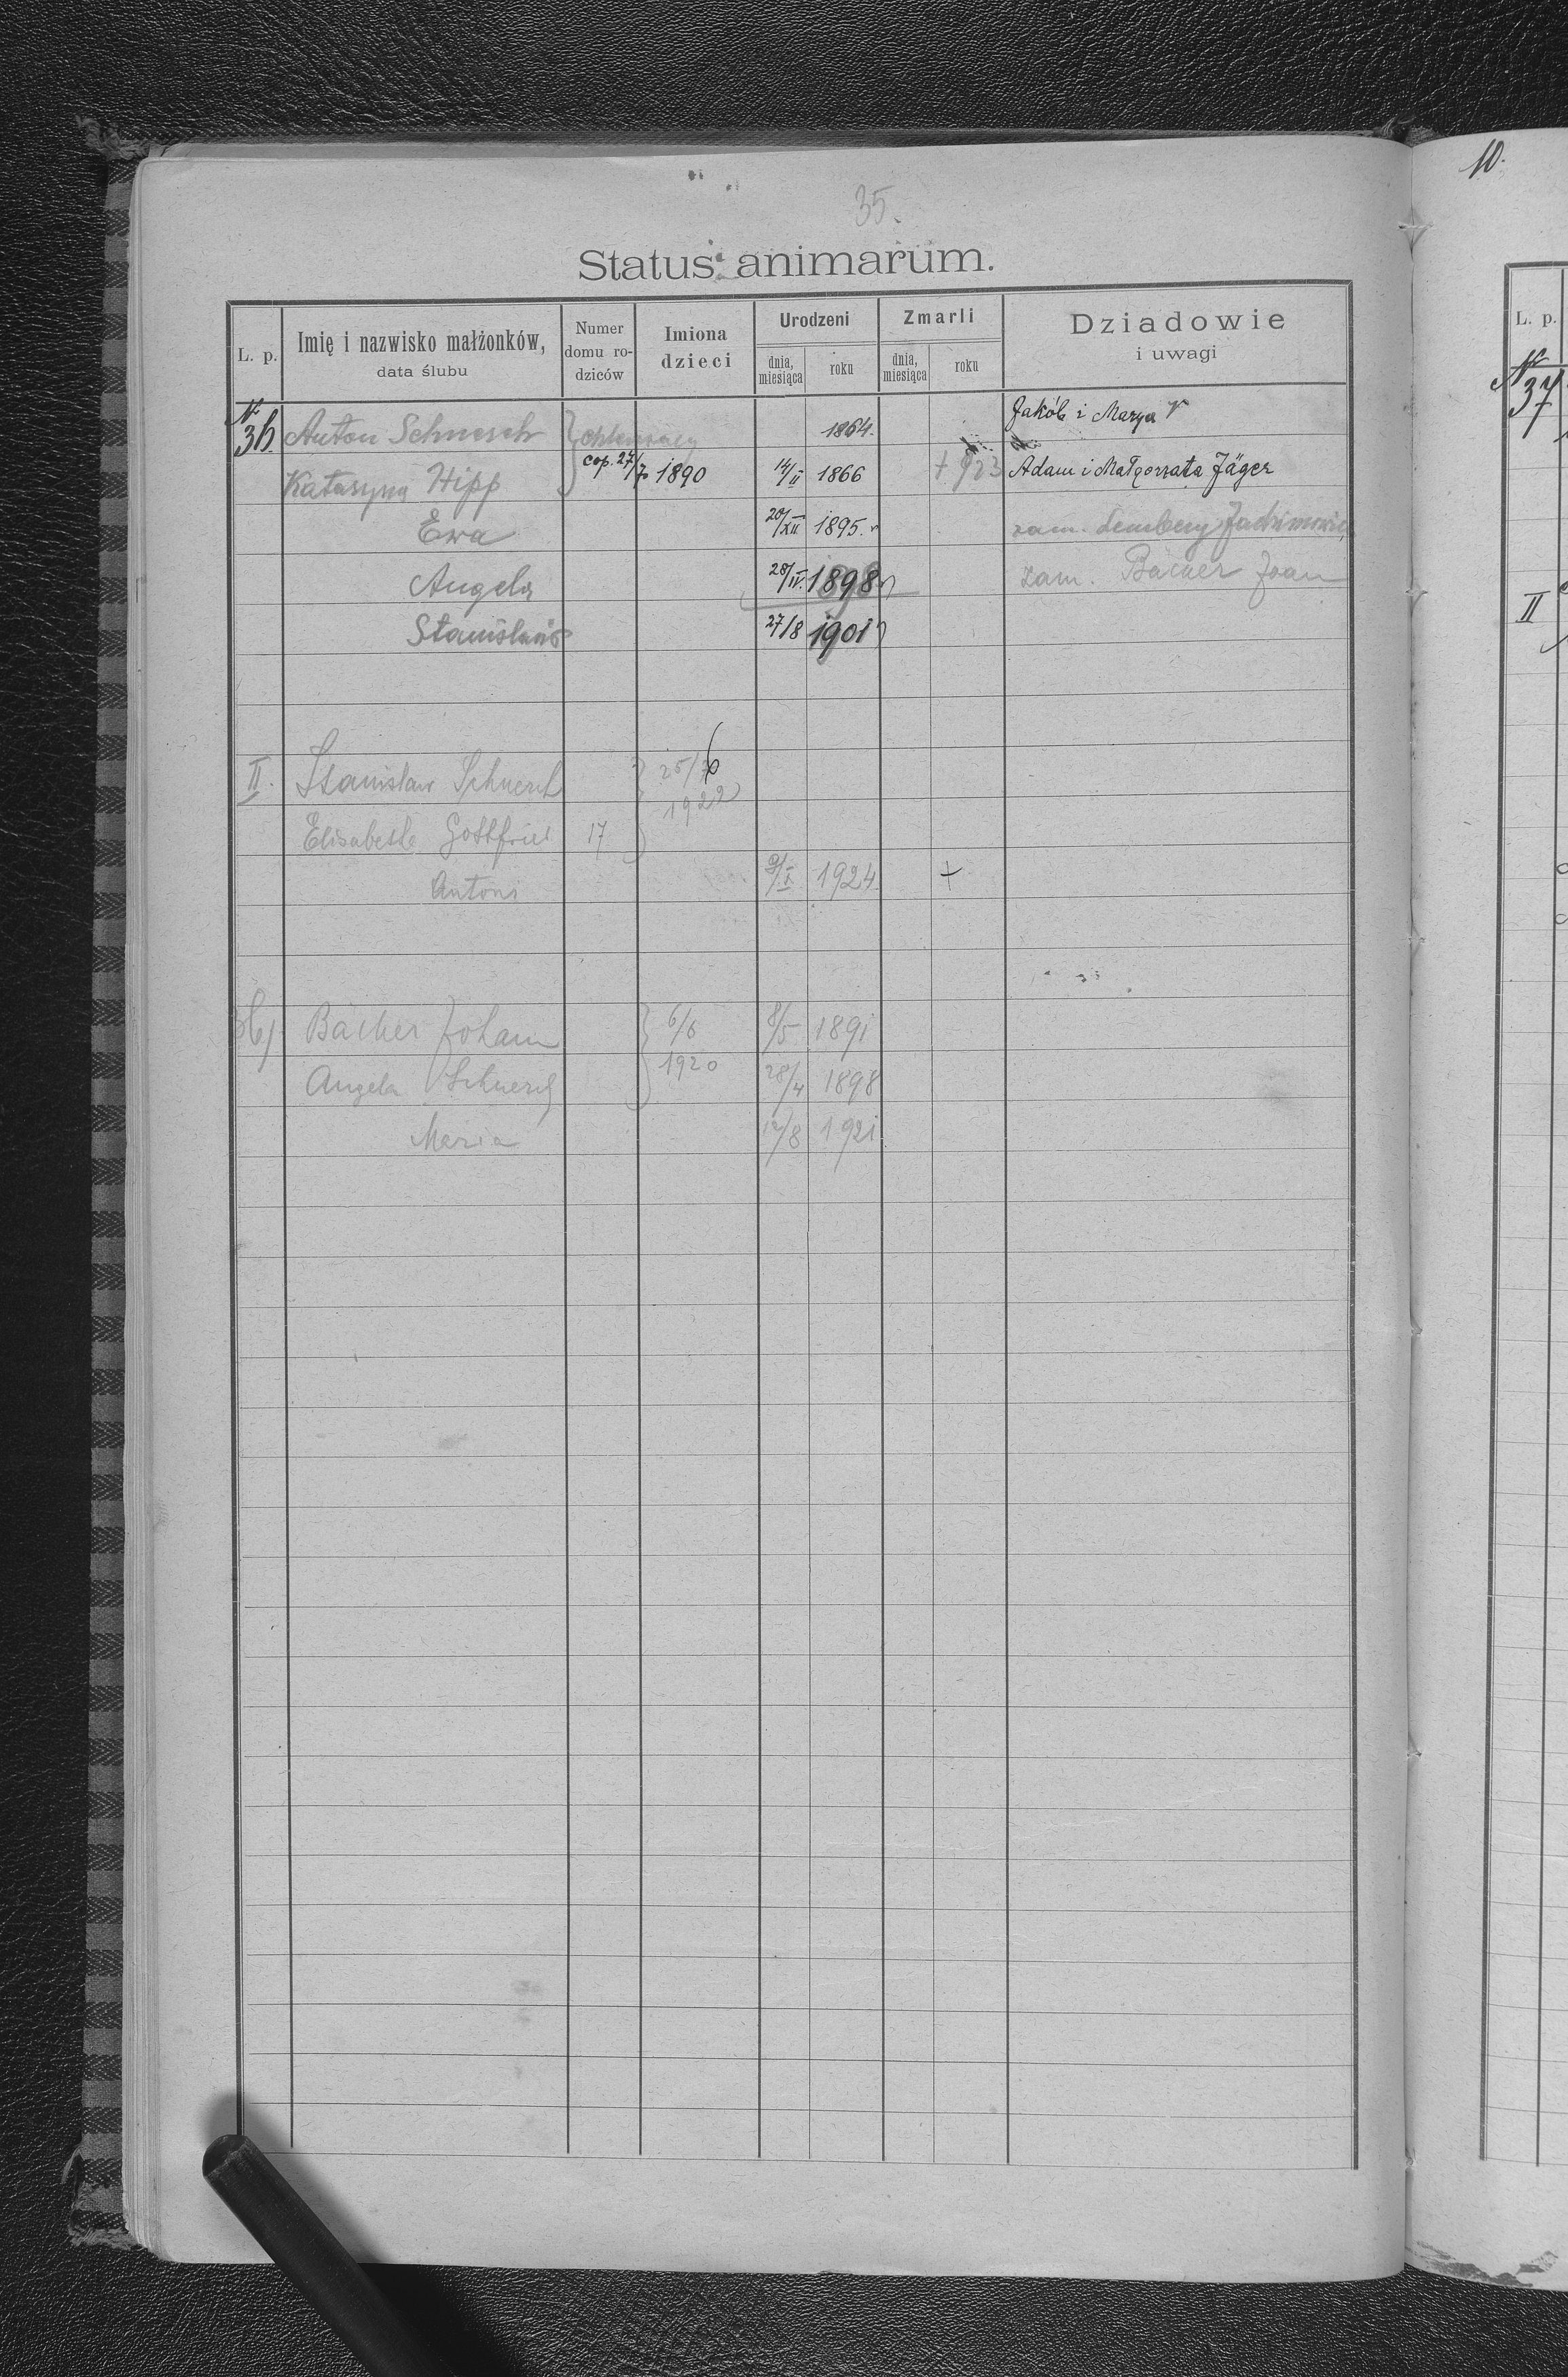 35.
Status animarum.
L. p. Imię i nazwisko małżonków, data ślubu Numer domu rodziców Imiona dzieci Urodzeni dnia, miesiąca roku Zmarli dnia, miesiąca roku Dziadowie i uwagi
N 36. Anton Schnesch 1864. Jakób i Marya
Katarzyna Hipp cop. 27/7 1890 14/II 1866 + 923 Adam i Małgorzata Jäger
Ewa 20/XII 1895. zam. Lemberg
Angela 28/IV. 1898 zam. Bäcker Joan
Stanisław 27/8 1901
II. Stanisław Schnesch 25/6
1922
Elisabeth Gottfried 17
Antoni 9/X 1924 +
36) Bäcker Johann 6/6 8/5 1891
Angela Schnesch 1920 28/4 1898
Maria 12/8 1921
10.
L. p.
N 37
II